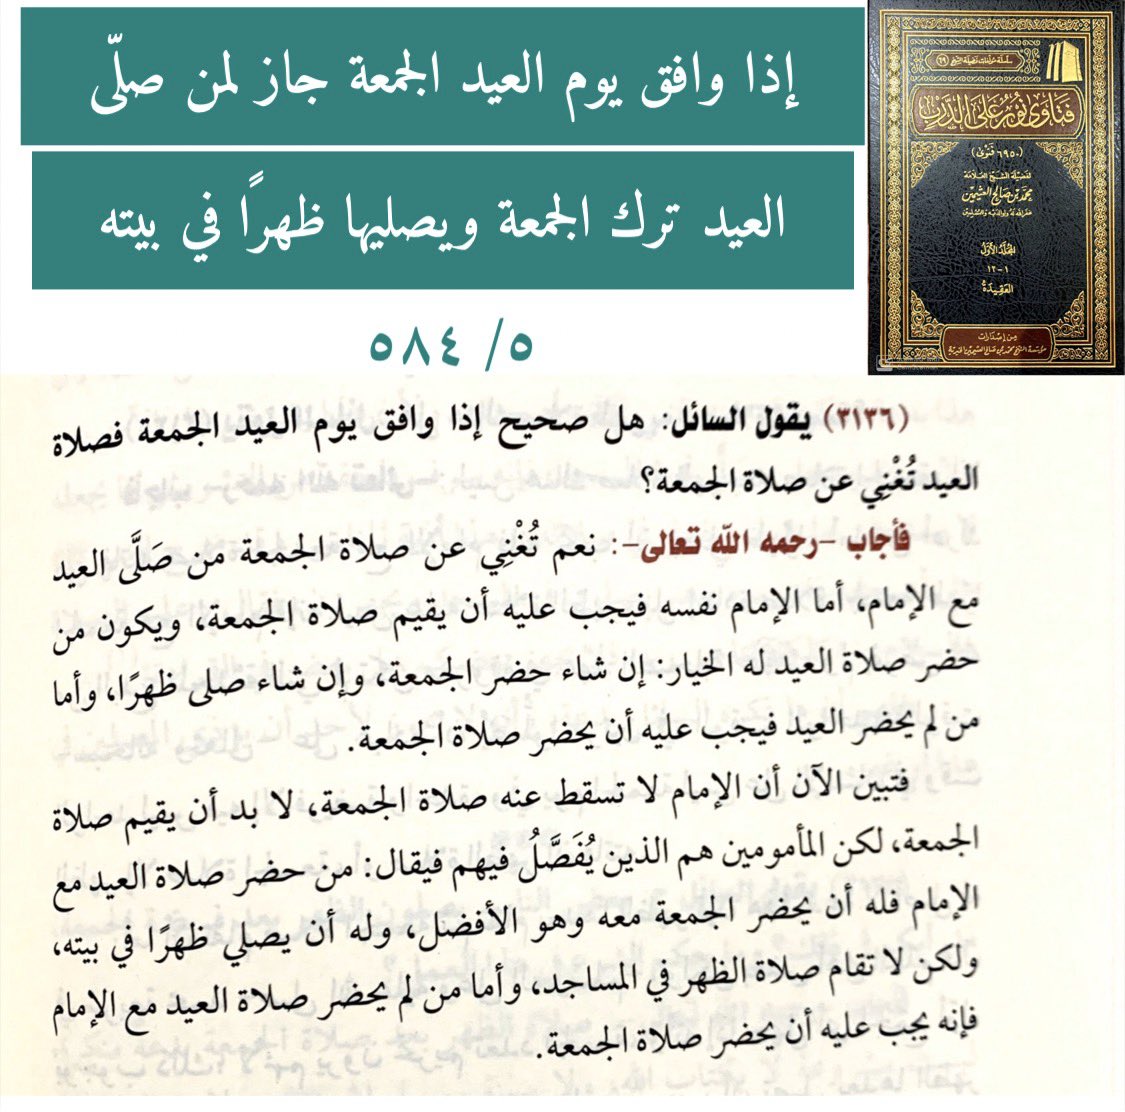 إذا وافق يوم العيد الجمعة جاز لمن صلّى
العيد ترك الجمعة ويصليها ظهرًا في بيته
٥/ ٥٨٤
فَتَاوَى نُورٌ عَلَى الدَّرْبِ
(٦٩٥٠ فتوى)
لفضيلة الشيخ العلامة
محمد بن صالح العثيمين
غفر الله له ولوالديه وللمسلمين
المجلد الأول
١-١٢
العقيدة
من إصدارات
مؤسسة الشيخ محمد بن صالح العثيمين الخيرية
(٣١٣٦) يقول السائل: هل صحيح إذا وافق يوم العيد الجمعة فصلاة
العيد تُغْنِي عن صلاة الجمعة؟
فأجاب -رحمه الله تعالى-: نعم تُغْنِي عن صلاة الجمعة من صَلَّى العيد
مع الإمام، أما الإمام نفسه فيجب عليه أن يقيم صلاة الجمعة، ويكون من
حضر صلاة العيد له الخيار: إن شاء حضر الجمعة، وإن شاء صلى ظهرًا، وأما
من لم يحضر العيد فيجب عليه أن يحضر صلاة الجمعة.
فتبين الآن أن الإمام لا تسقط عنه صلاة الجمعة، لا بد أن يقيم صلاة
الجمعة، لكن المأمومين هم الذين يُفَصَّلُ فيهم فيقال: من حضر صلاة العيد مع
الإمام فله أن يحضر الجمعة معه وهو الأفضل، وله أن يصلي ظهرًا في بيته،
ولكن لا تقام صلاة الظهر في المساجد، وأما من لم يحضر صلاة العيد مع الإمام
فإنه يجب عليه أن يحضر صلاة الجمعة.